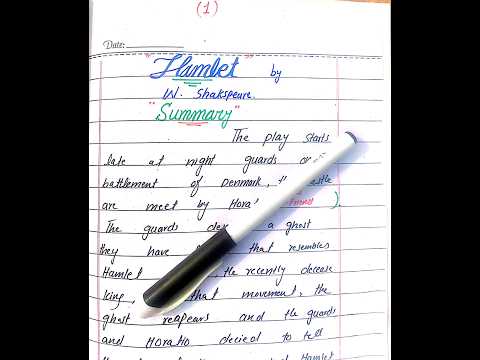 (1)
Date:
"Hamlet" by
W. Shakspeure.
"Summary"
The play starts
late at night guards
battlement of Denmark,
are meet by Hora
friend ).
The guards a ghost
they have that resembles
Hamlet the recently decease
king, that movement, the
ghost reapears and the guards
and Horatio decied to tell
Hamlet